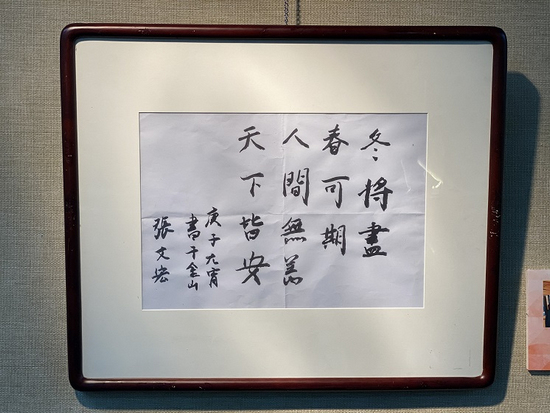 冬将盡
春可期
人間無恙
天下皆安
庚子元宵
書于金山
張文宏